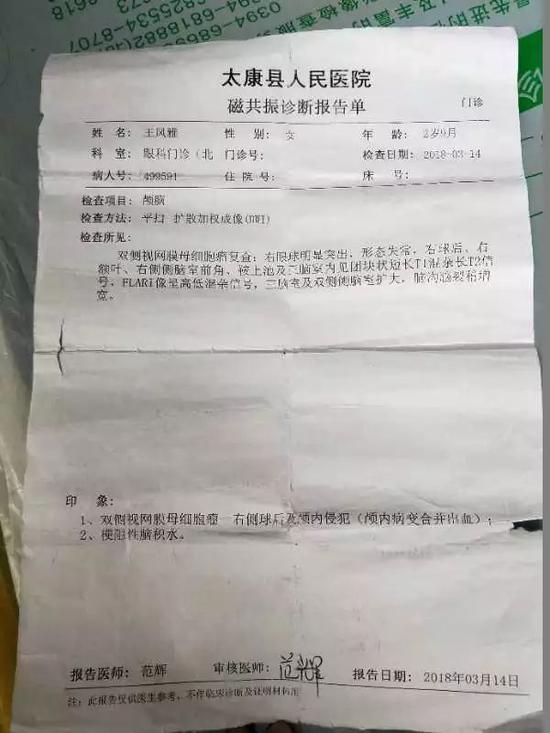 0394-6818882
8707
太康县人民医院
磁共振诊断报告单
门诊
姓 名: 王凤雅 性 别: 女 年 龄: 2岁9月
科 室: 眼科门诊(北 门诊号: 检查日期: 2018-03-14
病人号: 499591 住 院 号: 床 号:
检查项目: 颅脑
检查方法: 平扫 扩散加权成像(DWI)
检查所见:
双侧视网膜母细胞瘤复查: 右眼球明显突出、形态失常, 右球后、右
额叶、右侧侧脑室前角、鞍上池及三脑室内见团块状短长T1混杂长T2信
号, FLARI像呈高低混杂信号, 三脑室及双侧侧脑室扩大, 脑沟脑裂稍增
宽。
印 象:
1、双侧视网膜母细胞瘤 右侧球后及颅内侵犯(颅内病变合并出血);
2、梗阻性脑积水。
报告医师: 范辉 审核医师: 范辉 报告日期: 2018年03月14日
注: 此报告仅供医生参考, 不作临床诊断及证明材料用